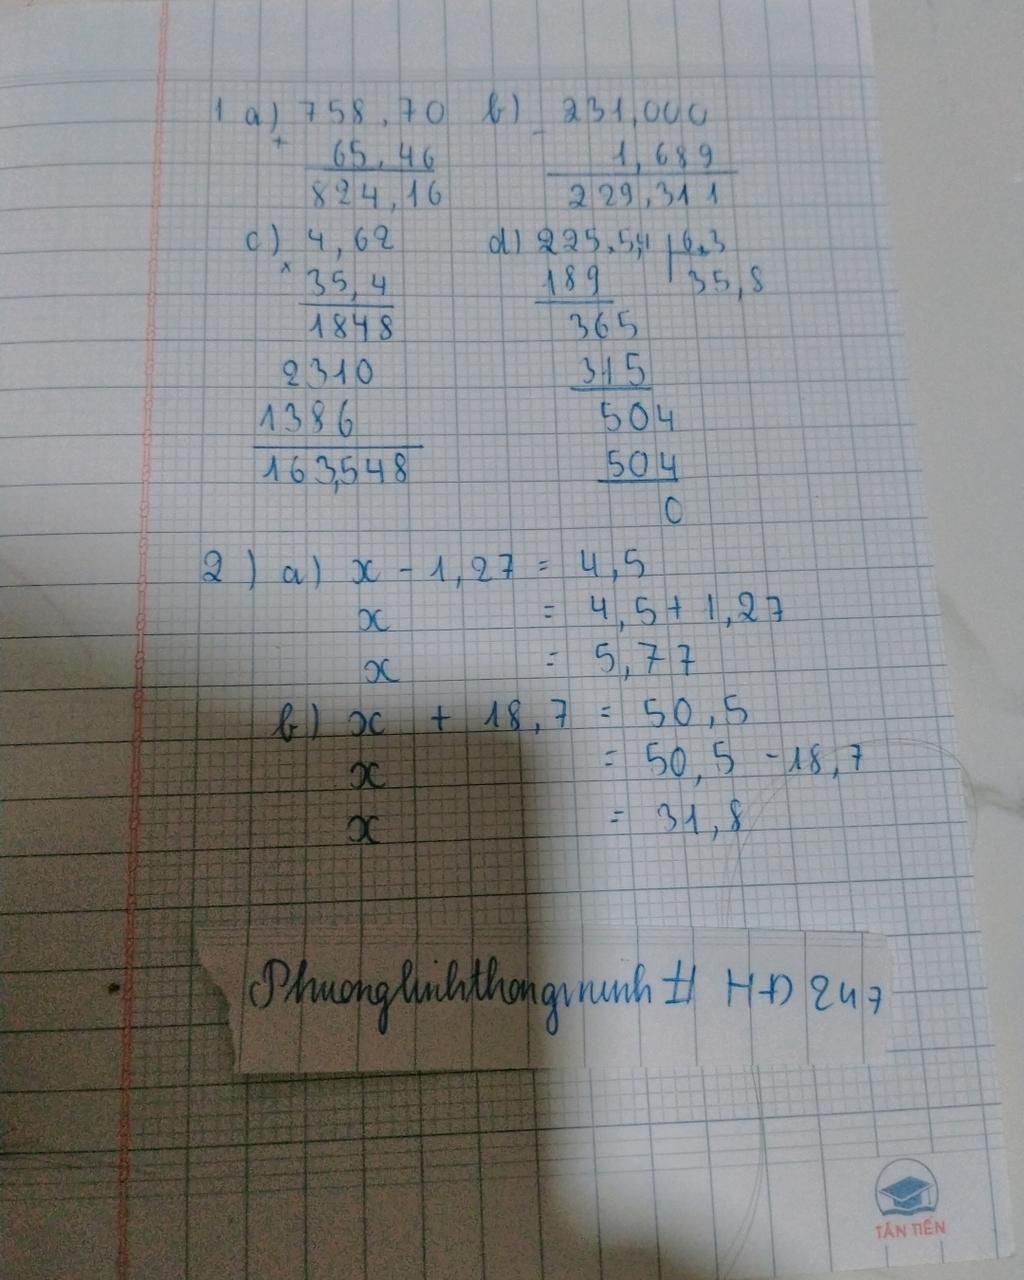 1 a) 758,70 b) 231,000
+ 65,46 - 1,689
824,16 229,311
c) 4,62 d) 225,5,4 6,3
x 35,4 189 35,8
1848 365
2310 315
1386 504
163,548 504
0
2) a) x - 1,27 = 4,5
x = 4,5 + 1,27
x = 5,77
b) x + 18,7 = 50,5
x = 50,5 - 18,7
x = 31,8
Phuonglinhthongminh # HĐ 247
TÂN TIẾN